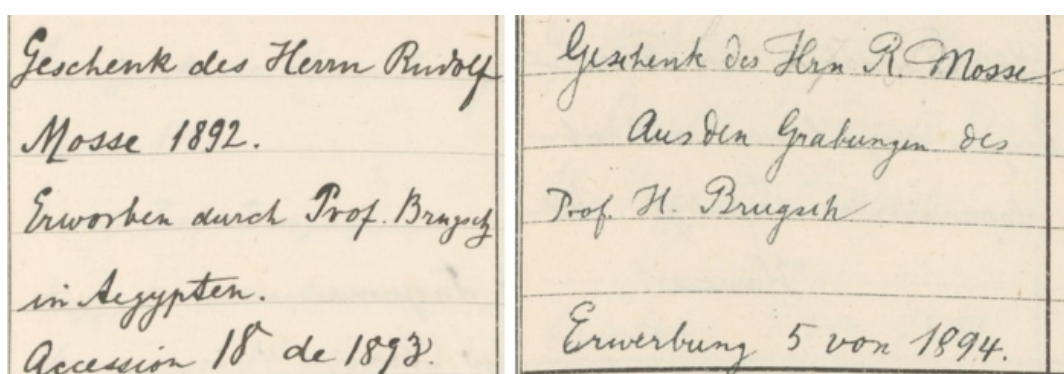 Geschenk des Herrn Rudolf
Mosse 1892.
Erworben durch Prof. Brugsch
in Aegypten.
Accession 18 de 1893.
Geschenk des Hrn R. Mosse
Aus den Grabungen des
Prof. H. Brugsch
Erwerbung 5 von 1894.